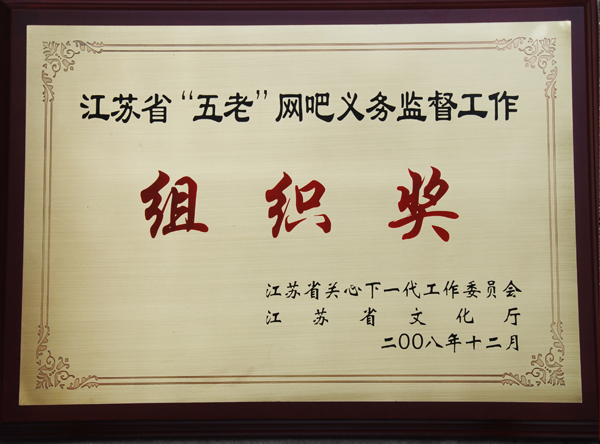 江苏省“五老”网吧义务监督工作
组织奖
江苏省关心下一代工作委员会
江苏省文化厅
二00八年十二月